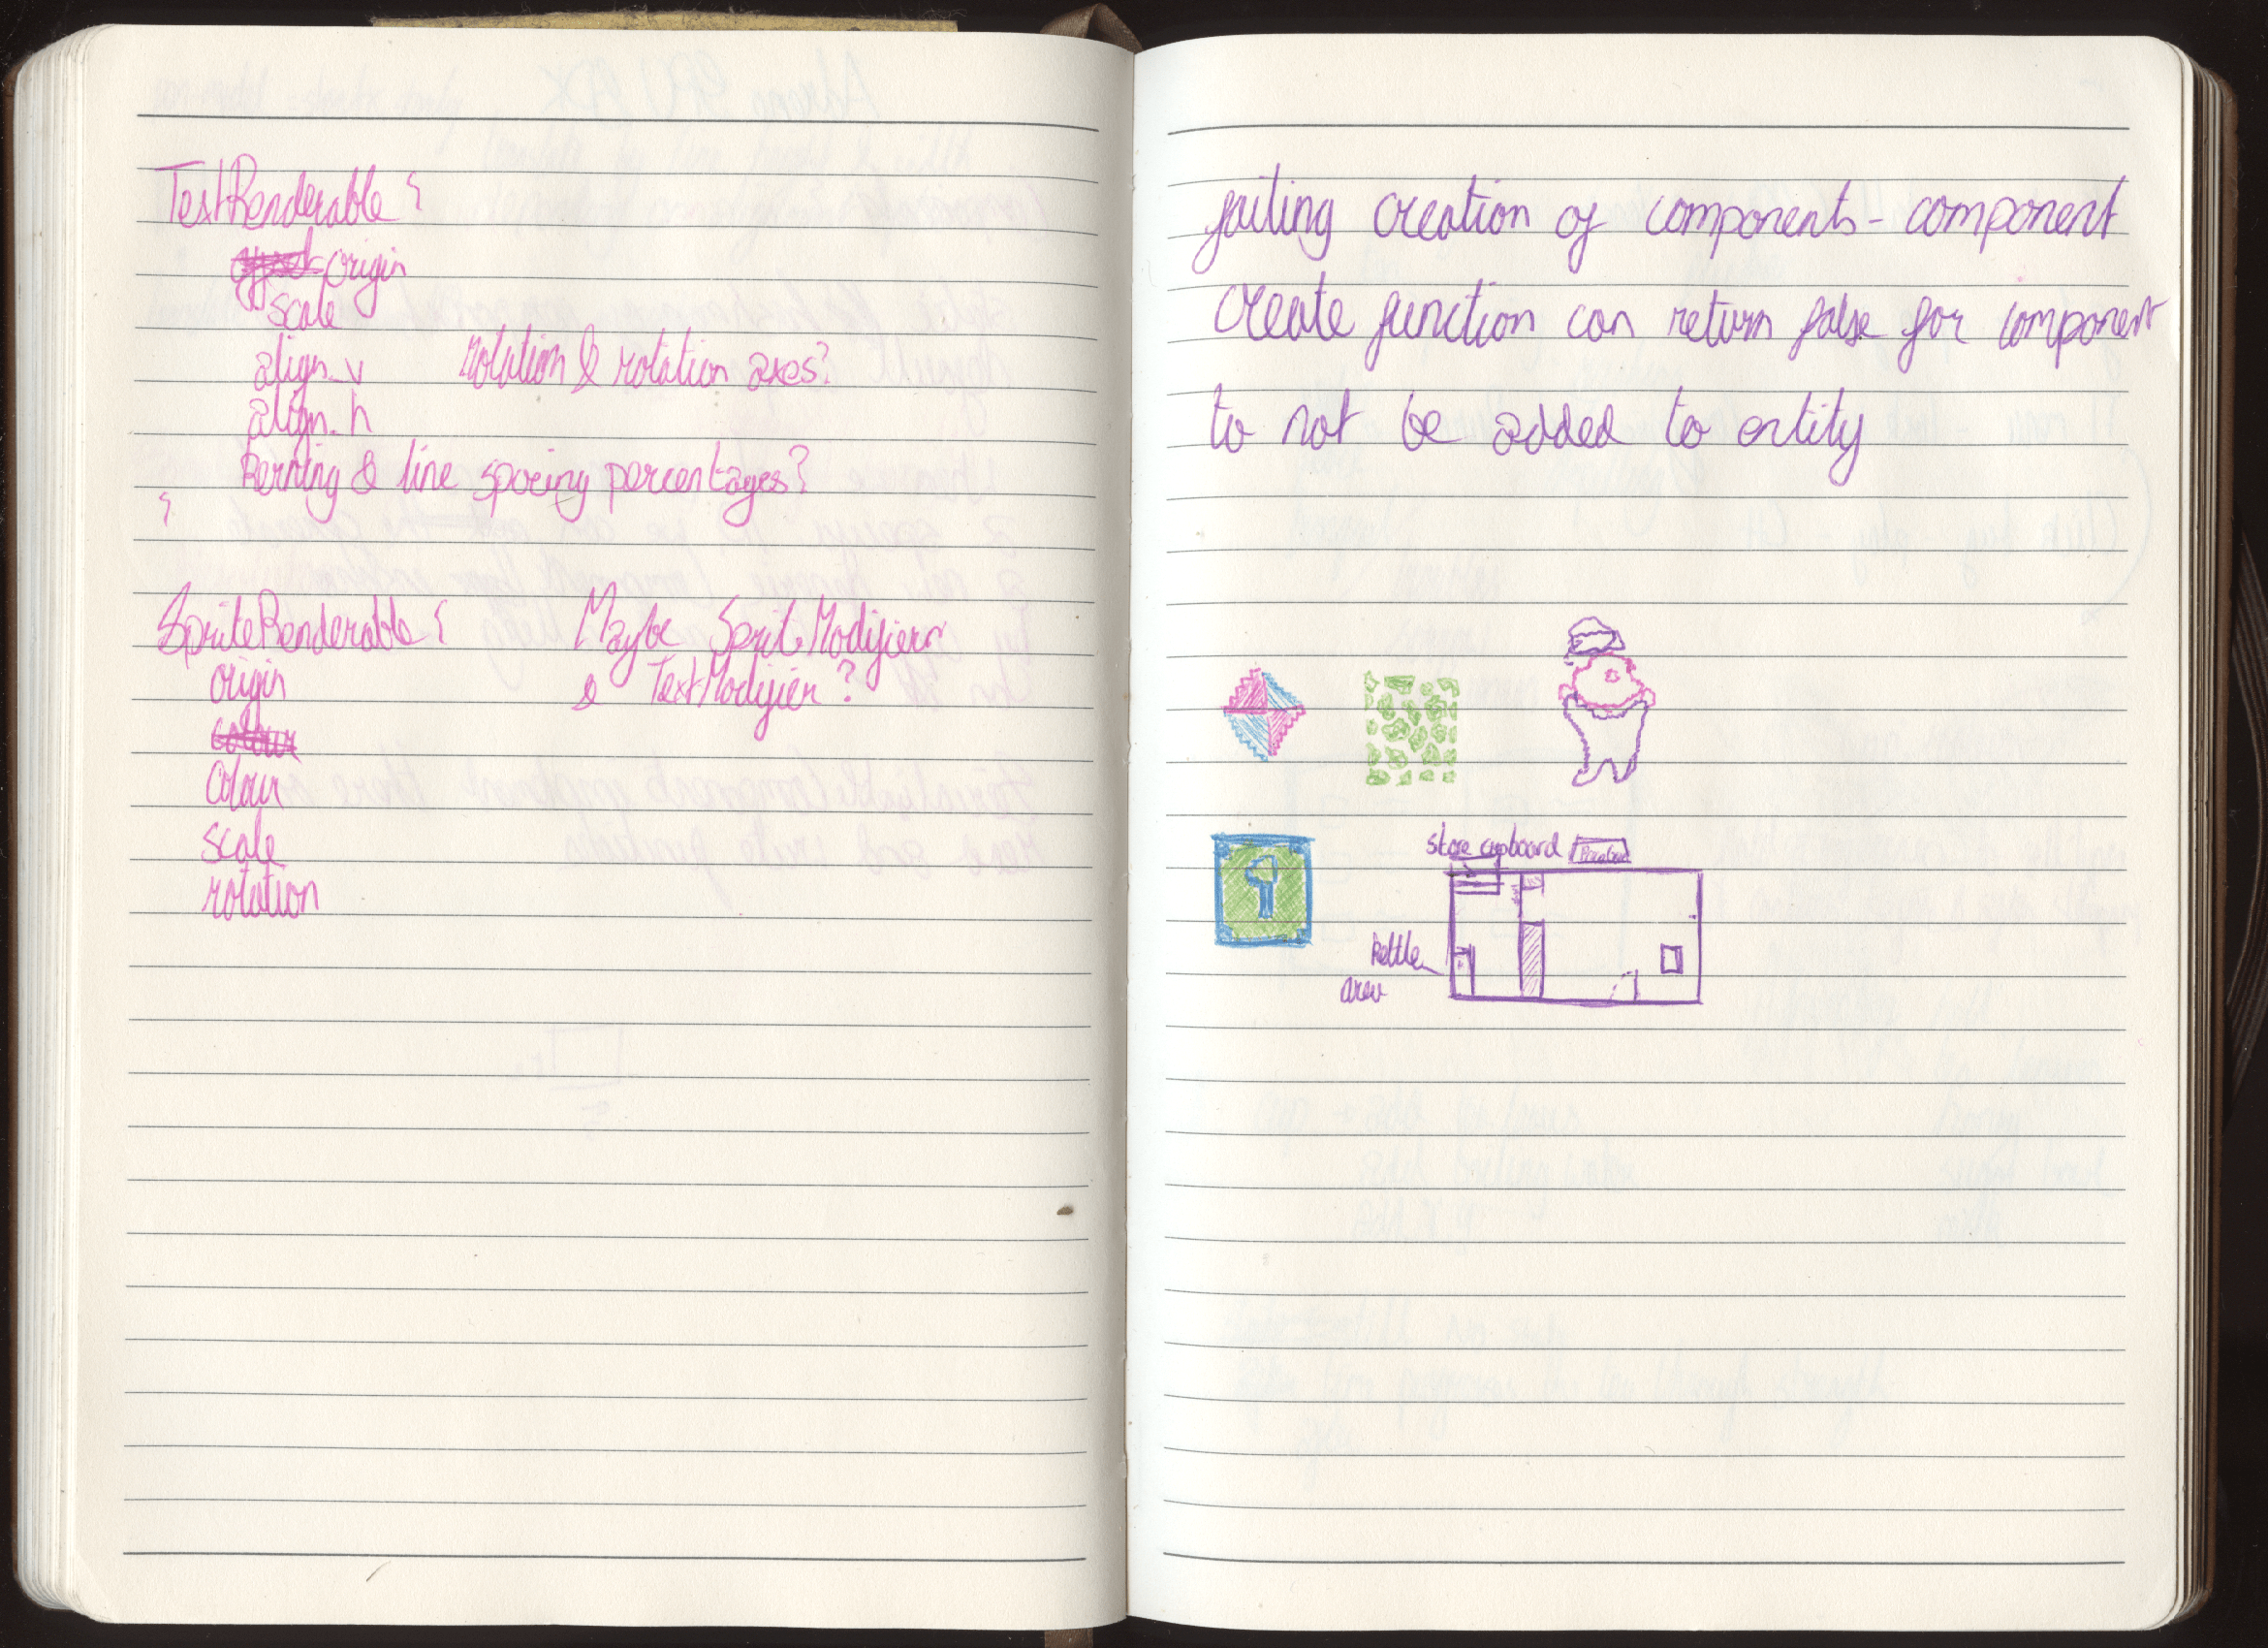 TextRenderable {
offset origin
scale
align_v rotation & rotation axes?
align_h
Kerning & line spacing percentages?
}
SpriteRenderable { Maybe SpriteModifier
origin & TextModifier?
colour
colour
scale
rotation
failing creation of components - component
create function can return false for component
to not be added to entity
store cupboard
Kettle
area